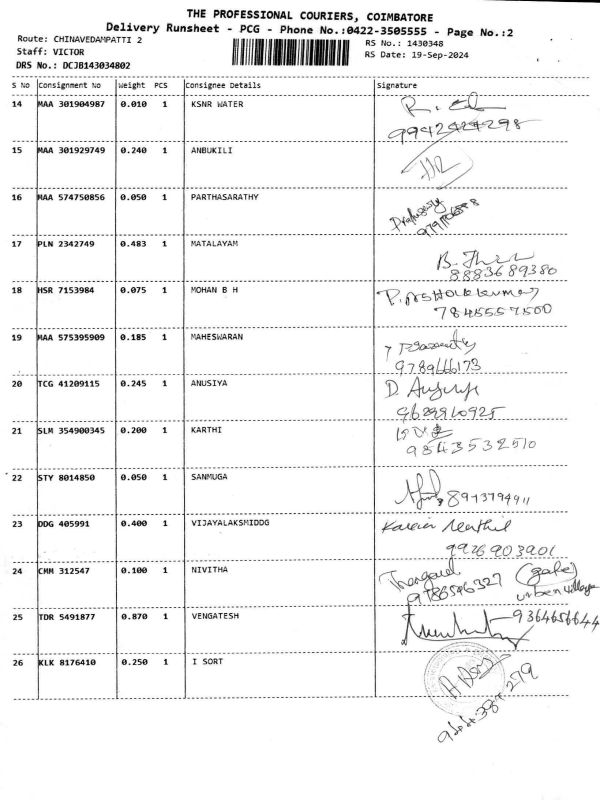 THE PROFESSIONAL COURIERS, COIMBATORE
Delivery Runsheet - PCG - Phone No.:0422-3505555 - Page No.:2
Route: CHINAVEDAMPATTI 2
Staff: VICTOR
DRS No.: DCJB143034802
RS No.: 1430348
RS Date: 19-Sep-2024
S No Consignment No Weight PCS Consignee Details Signature
14 MAA 301904987 0.010 1 KSNR WATER
9942424298
15 MAA 301929749 0.240 1 ANBUKILI
16 MAA 574750856 0.050 1 PARTHASARATHY
17 PLN 2342749 0.483 1 MATALAYAM
8883689380
18 HSR 7153984 0.075 1 MOHAN B H
7845557500
19 MAA 575395909 0.185 1 MAHESWARAN
9789666173
20 TCG 41209115 0.245 1 ANUSIYA
9629910925
21 SLM 354900345 0.200 1 KARTHI
9843532510
22 STY 8014850 0.050 1 SANMUGA
8943794911
23 DDG 405991 0.400 1 VIJAYALAKSMIDDG
9926903901
24 CMM 312547 0.100 1 NIVITHA
Thangavel (gate)
9786596327 urben village
25 TDR 5491877 0.870 1 VENGATESH 9364656644
26 KLK 8176410 0.250 1 I SORT